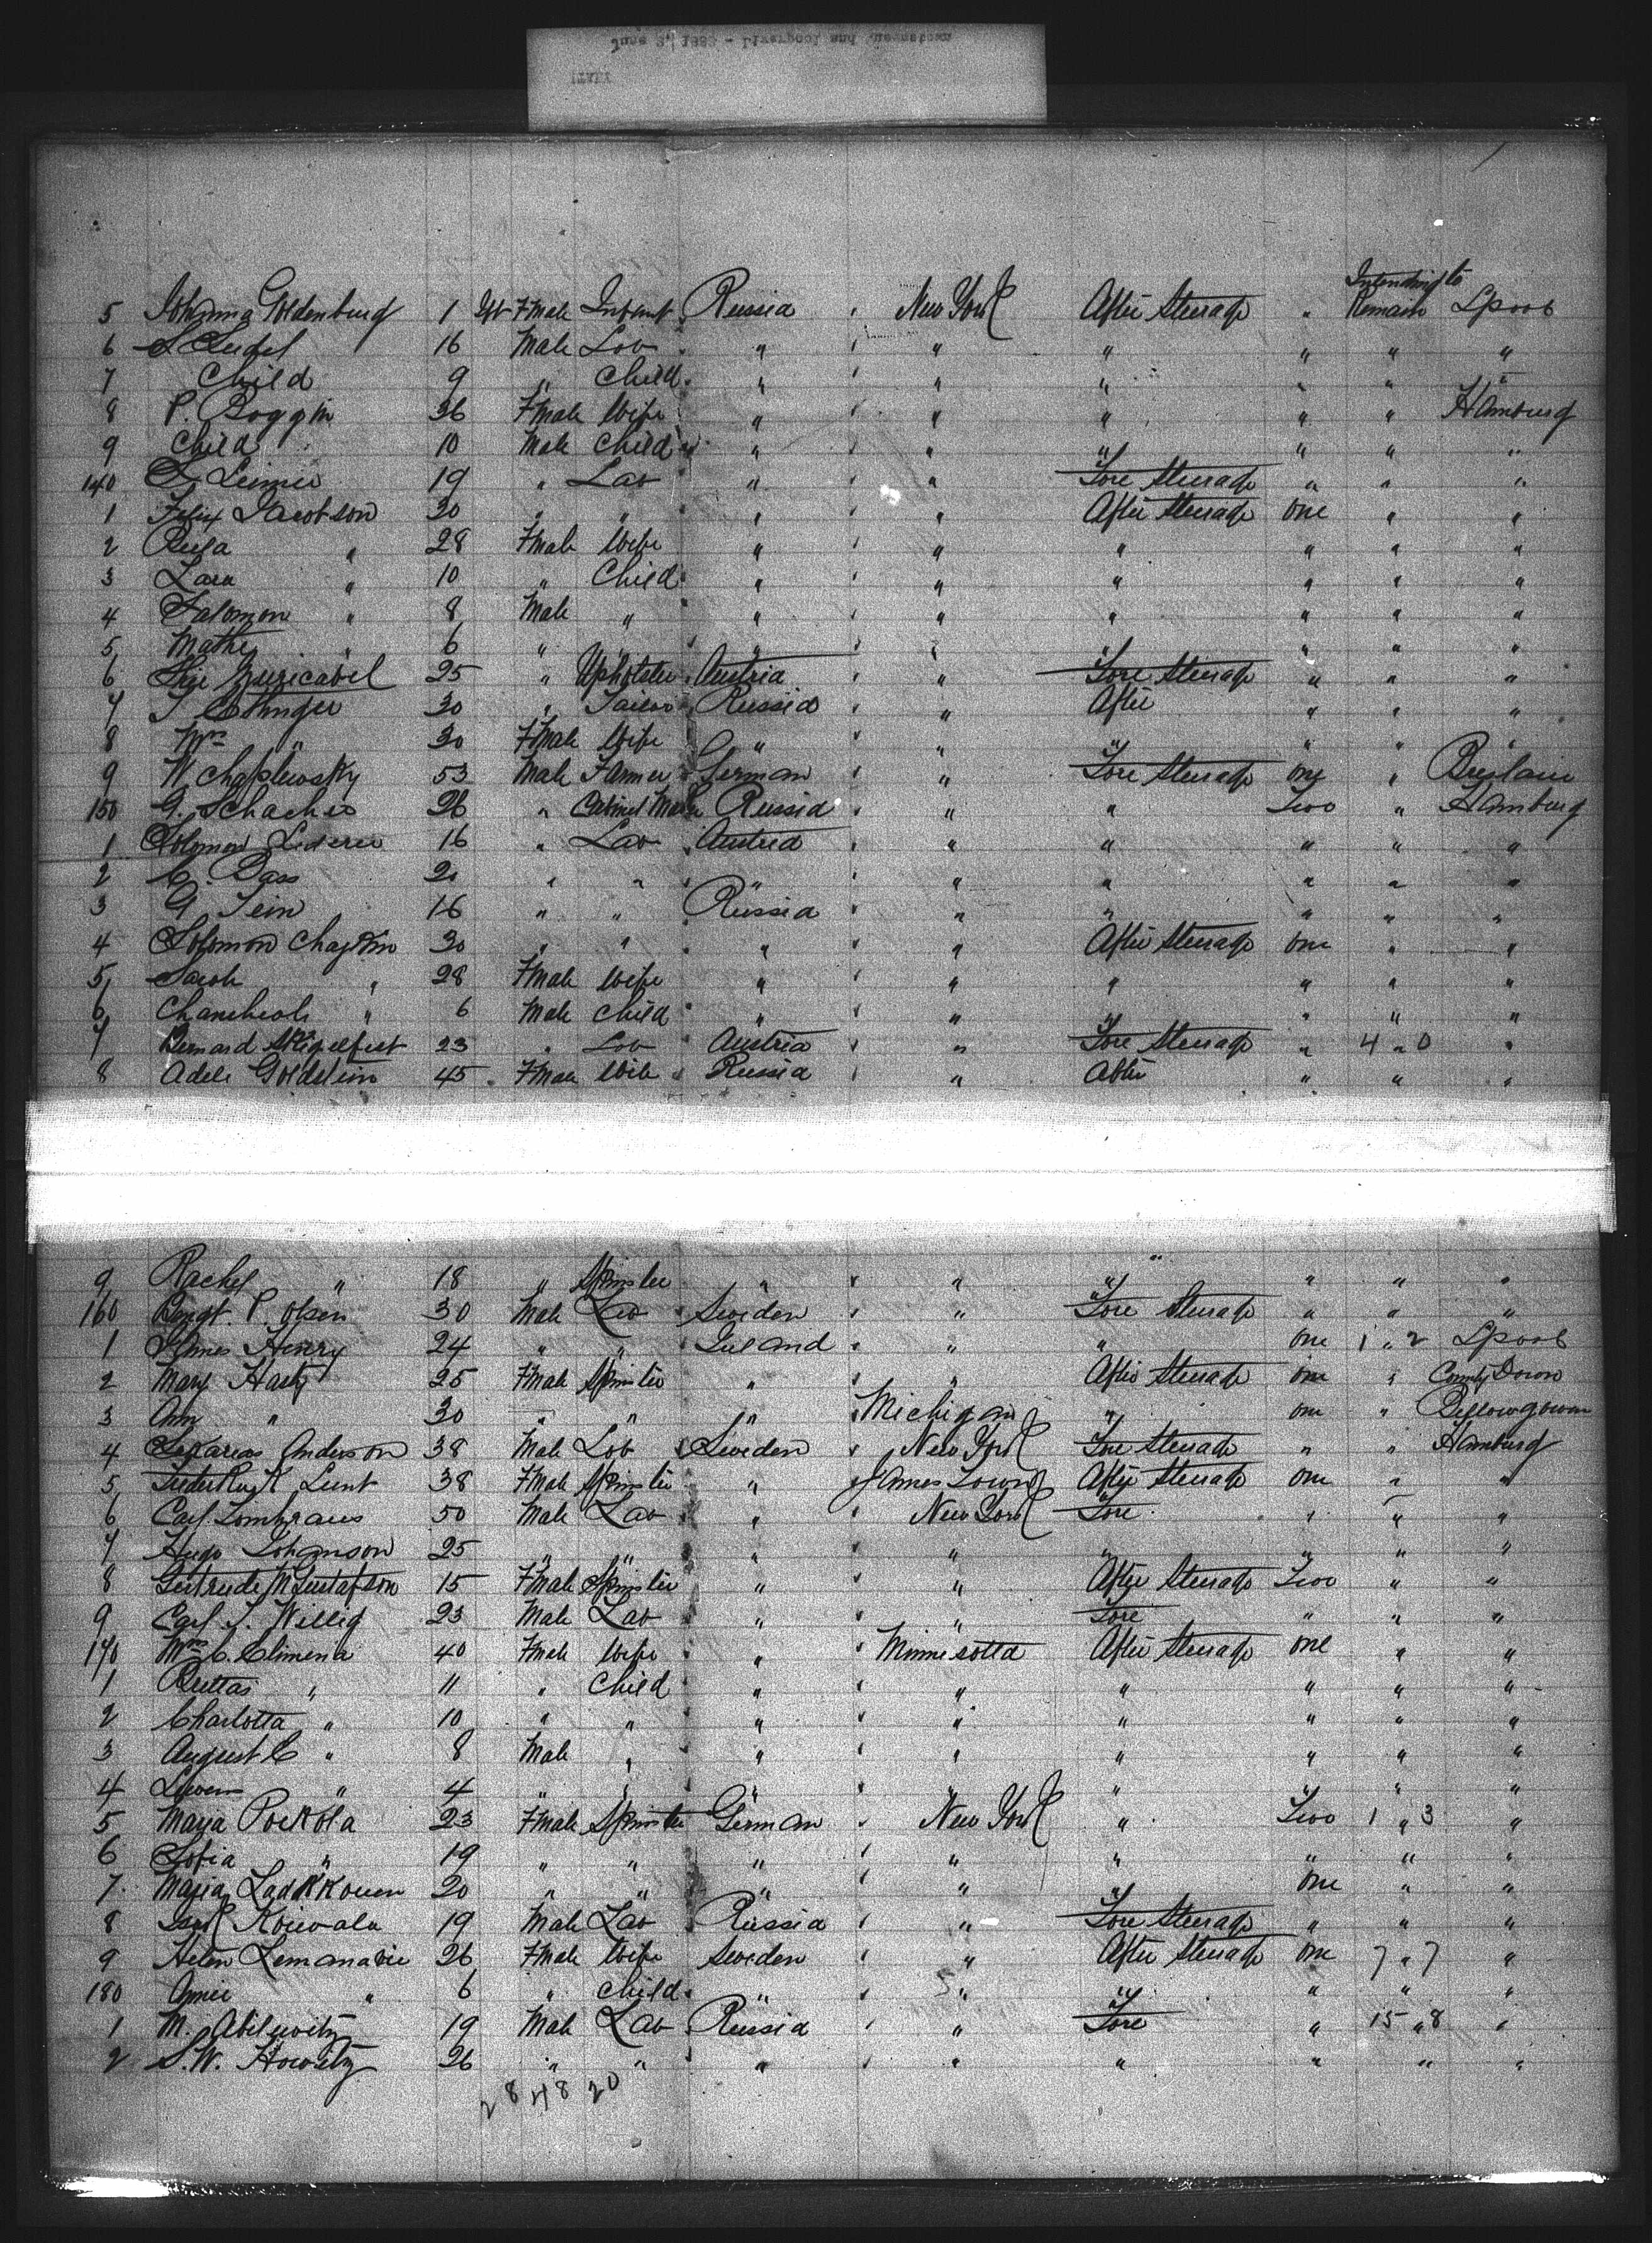 5 Johanna Goldenburg 1 Yr Fmale Infant Russia " New York After Steerage " Intending to Remain Lpool
6 S Seidel 16 Male Lab " " " " " " "
7 Child 9 " Child " " " " " "
8 P. Boggin 36 Fmale Wife " " " " " Hamburg
9 Child 10 Male Child " " " " " "
140 19 " Lab " " Fore Steerage " " "
1 Felix Jacobson 30 " " " " After Steerage One " "
2 Rusa " 28 Fmale Wife " " " " " "
3 Lara " 10 " Child " " " " " "
4 Salomon " 8 Male " " " " " " "
5 Mathe " 6 " " " " " " " "
6 25 " Upholster Austria " Fore Steerage " " "
7 30 " Tailor Russia " After " " "
8 Mrs " 30 Fmale Wife " " " " " "
9 W Chaplewsky 53 Male Farmer German " Fore Steerage One " Breslau
150 G. Schacher 26 " Cabinet Maker Russia " " Two " Hamburg
1 Solomon Lederer 16 " Lab Austria " " " " "
2 C. Dass 21 " " " " " " " "
3 G. Tein 16 " " Russia " " " " "
4 Solomon Chaykin 30 " " " " After Steerage One " "
5 Sarah " 28 Fmale Wife " " " " " "
6 " 6 Male Child " " " " " "
7 Bernard 23 " Lab Austria " Fore Steerage " 4 " 0 "
8 Adele Goldstein 45 Fmale Wife Russia " After " " "
9 Rachel " 18 " Spinster " " " " " "
160 Bengt. P. Olsen 30 Male Lab Sweden " Fore Steerage " " "
1 James Henry 24 " " Ireland " " One 1 " 2 Lpool
2 Mary Hasty 25 Fmale Spinster " " After Steerage One " County Down
3 Ann " 30 " " " Michigan " One "
4 Anderson 38 Male Lab Sweden New York Fore Steerage " " Hamburg
5 Lunt 38 Fmale Spinster " James Town After Steerage One " "
6 Carl 50 Male Lab " New York Fore " " "
7 Hugo Johanson 25 " " " " " " " "
8 Gertrude M Gustafson 15 Fmale Spinster " " After Steerage Two " "
9 Carl J. Willig 23 Male Lab " " Fore " " "
170 Mrs C. Climena 40 Fmale Wife " Minnesotta After Steerage One " "
1 Brittas " 11 " Child " " " " " "
2 Charlotta " 10 " " " " " " " "
3 August C " 8 Male " " " " " " "
4 " 4 " " " " " " " "
5 Maria Pockola 23 Fmale Spinster German New York " Two 1 " 3 "
6 Sofia " 19 " " " " " " " "
7 Maria Ladkkouen 20 " " " " " One " "
8 Koivala 19 Male Lab Russia " Fore Steerage " " "
9 Helen 26 Fmale Wife Sweden " After Steerage One 7 " 7 "
180 " 6 " Child " " " " " "
1 M. Abilewitz 19 Male Lab Russia " Fore " 15 " 8 "
2 S. W. Howitz 26 " " " " " " " "
28 48 20